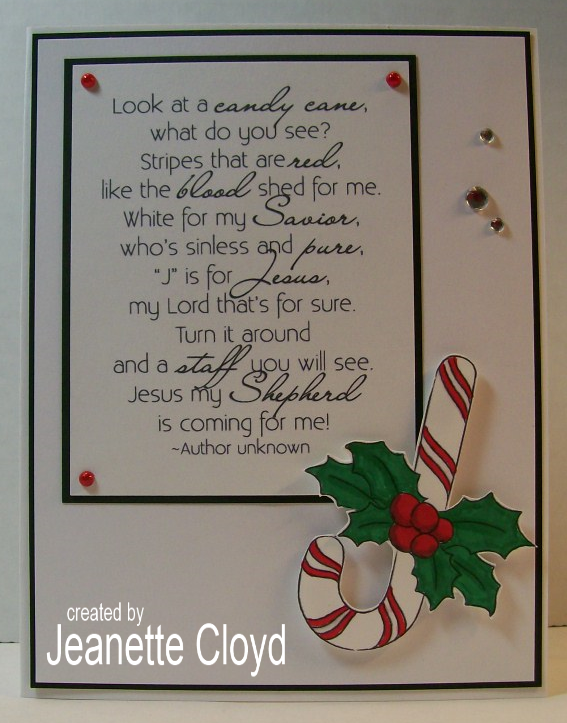 Look at a candy cane,
what do you see?
Stripes that are red,
like the blood shed for me.
White for my Savior,
who's sinless and pure,
"J" is for Jesus,
my Lord that's for sure.
Turn it around
and a staff you will see.
Jesus my Shepherd
is coming for me!
~Author unknown
created by
Jeanette Cloyd